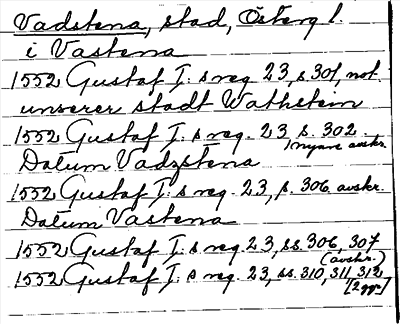 Vadstena, stad, Österg l.
i Vastena
1552 Gustaf I:s reg. 23, s. 301, not.
unserer stadt Wathstein
1552 Gustaf I:s reg. 23 s. 302
(nyare avskr.
Datum Vadzstena
1552 Gustaf I:s reg. 23, s. 306 avskr.
Datum Vastena
1552 Gustaf I:s reg. 23, ss. 306, 307
(avskr.)
1552 Gustaf I:s reg. 23, ss. 310, 311, 312
[2 ggr]